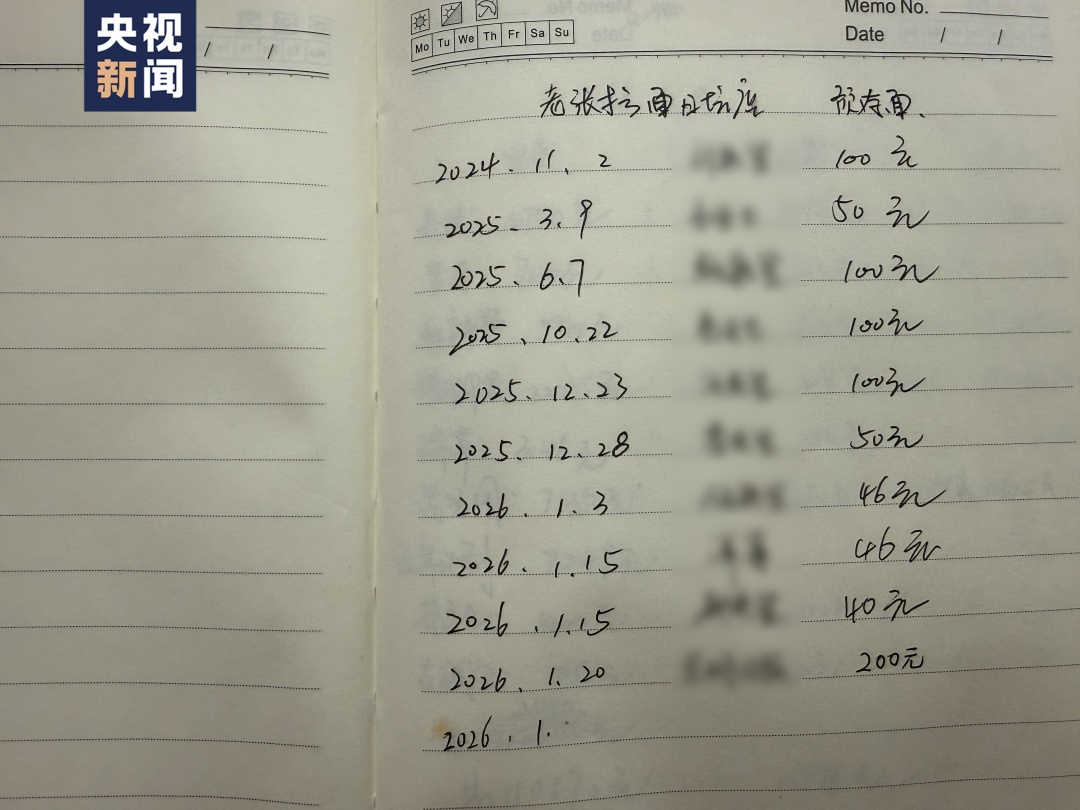 央视
新闻
Mo Tu We Th Fr Sa Su
Memo No.
Date / /
老张拉面日坛店 预存面.
2024.11.2 100元
2025.3.9 50元
2025.6.7 100元
2025.10.22 100元
2025.12.23 100元
2025.12.28 50元
2026.1.3 46元
2026.1.15 46元
2026.1.15 40元
2026.1.20 200元
2026.1.